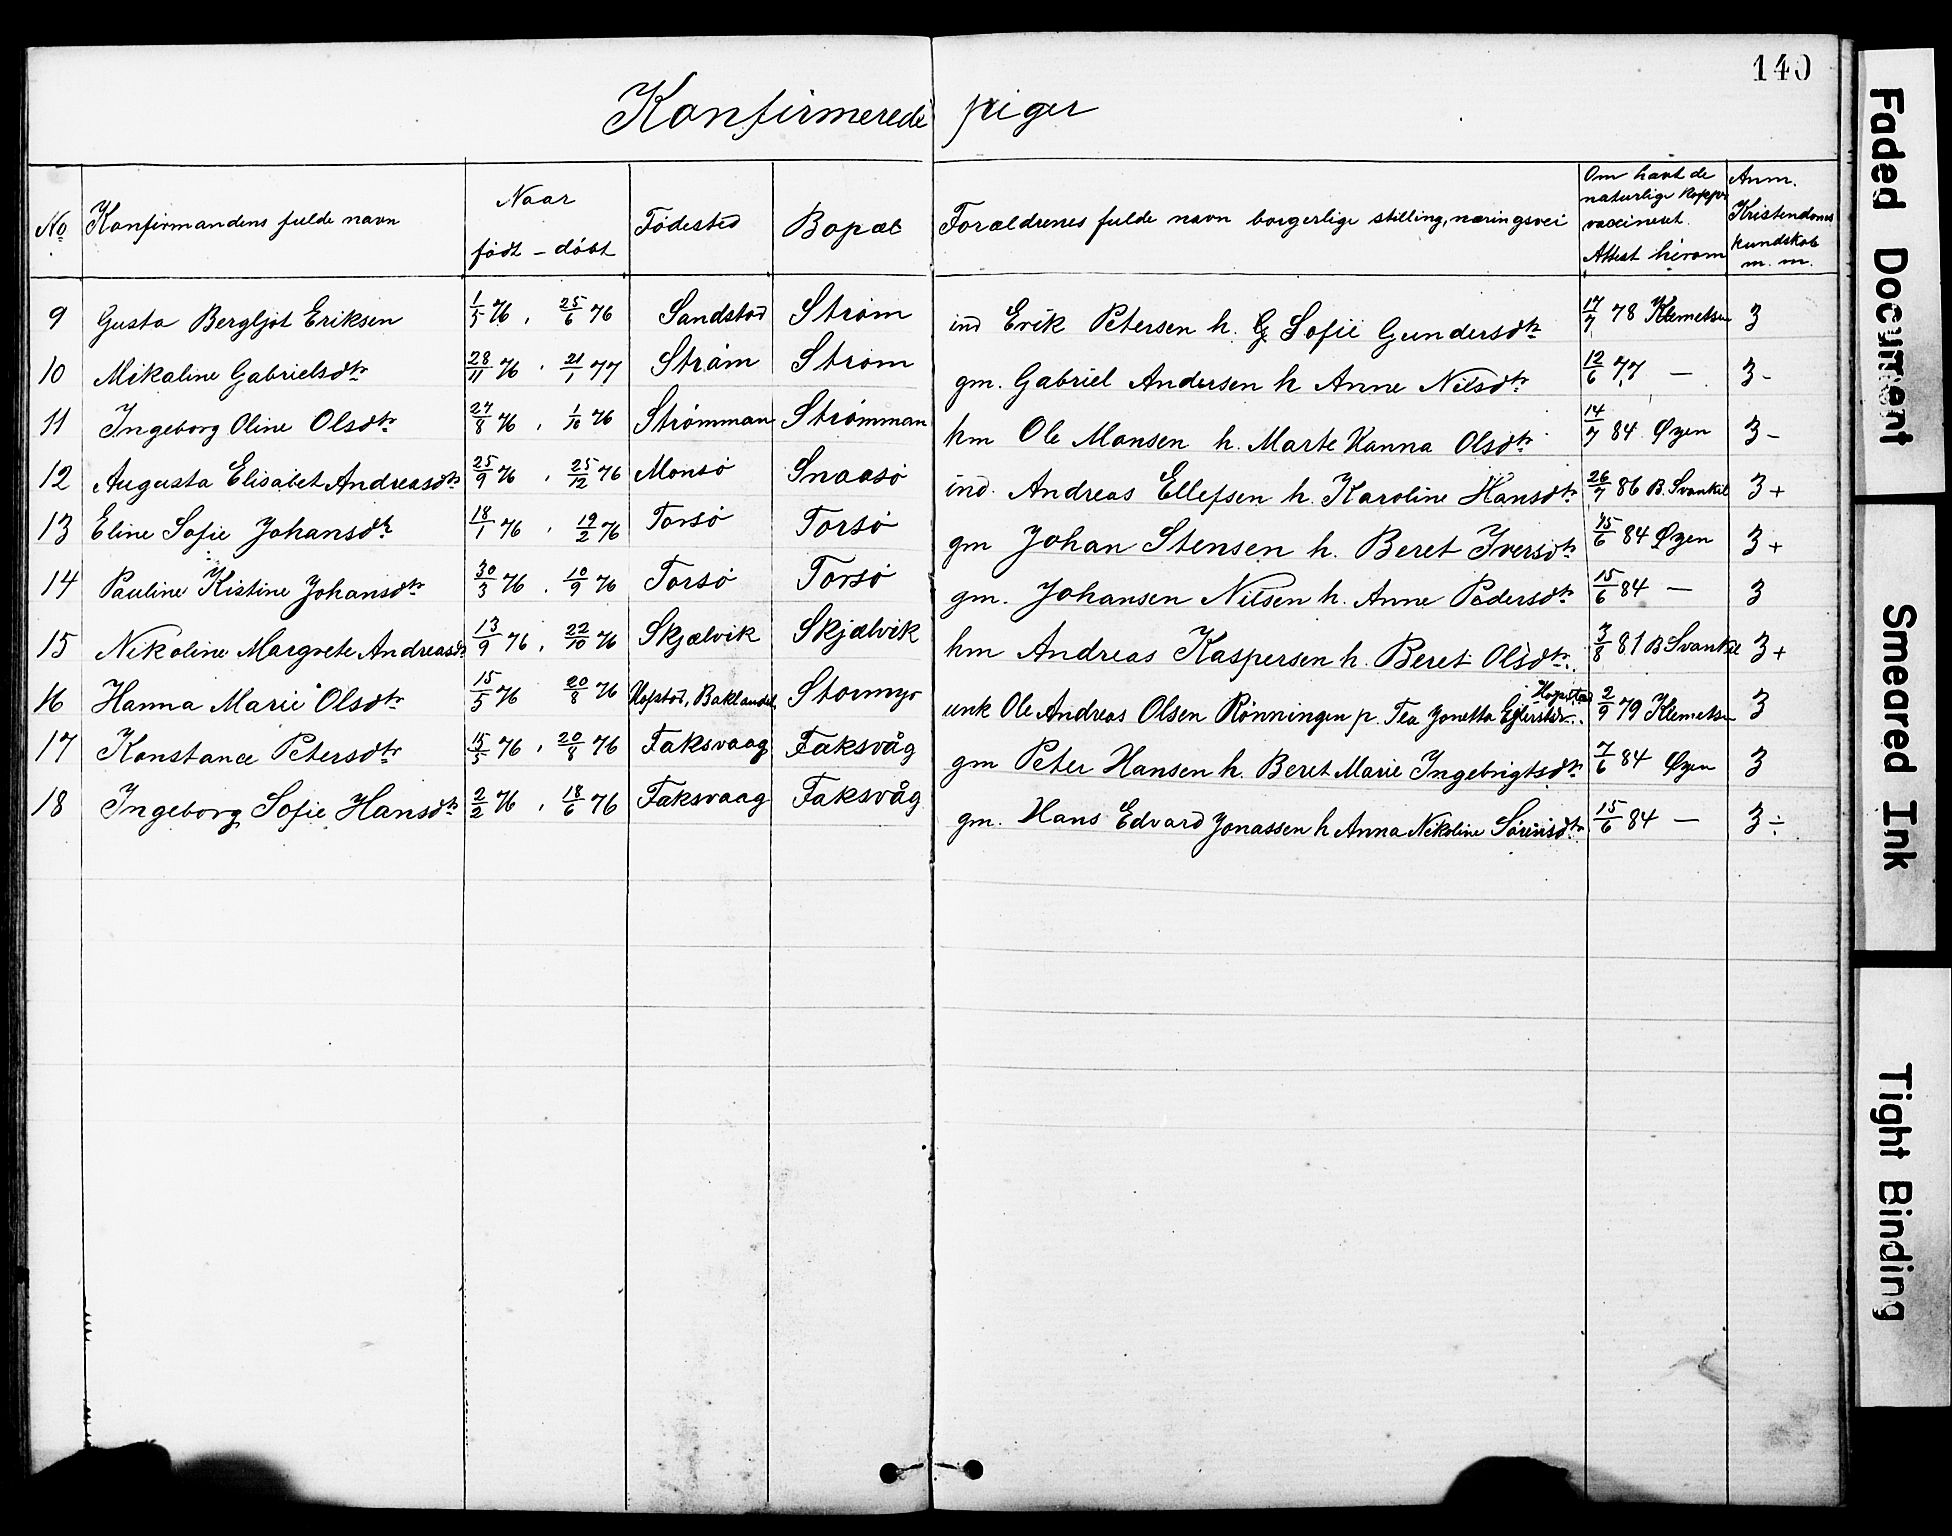 140
Konfirmerede piger
No Konfirmandens fulde navn Naar født - døbt Fødested Bopæl Forældrenes fulde navn borgerlige stilling, næringsvei Om havt de naturlige Kopper vaccineret. Attest herom Anm. Kristendoms kundskab m. m.
9 Gusta Bergljot Eriksen 1/5 76, 25/6 76 Sandstad Strøm ind Erik Petersen h. G Sofie Gundersdtr 17/7 78 Klemetsen 3
10 Mikaline Gabrielsdtr 28/11 76, 21/1 77 Strøm Strøm gm. Gabriel Andersen h Anne Nilsdtr 12/6 77 — 3-
11 Ingeborg Oline Olsdtr 27/8 76, 1/10 76 Strømman Strømman hm Ole Monsen h. Marte Hanna Olsdtr 14/7 84 Øyen 3-
12 Augusta Elisabet Andreasdtr 25/9 76, 25/12 76 Monsø Snaasø ind. Andreas Ellefsen h. Karoline Hansdtr 26/7 86 B. Svankil 3+
13 Eline Sofie Johansdtr 18/1 76, 19/2 76 Torsø Torsø gm Johan Stensen h. Beret Iversdtr 15/6 84 Øyen 3+
14 Pauline Kistine Johansdtr 30/3 76, 10/9 76 Torsø Torsø gm. Johansen Nilsen h. Anne Pedersdtr 15/6 84 — 3
15 Nikoline Margrete Andreasdtr 13/9 76, 22/10 76 Skjælvik Skjælvik hm Andreas Kaspersen h. Beret Olsdtr. 3/8 81 B Svankil 3+
16 Hanna Marie Olsdtr 15/5 76 20/8 76 Hopstad, Baklandet Stormyr unk Ole Andreas Olsen Rønningen p. Tea Jonetta Hopstad 2/9 79 Klemetsen 3
17 Konstance Petersdtr 15/5 76, 20/8 76 Faksvaag Faksvåg gm Peter Hansen h. Beret Marie Ingebrigtsdtr 7/6 84 Øyen 3
18 Ingeborg Sofie Hansdtr 2/2 76, 18/6 76 Faksvaag Faksvåg gm. Hans Edvard Jonassen h Anna Nikoline Sørensdtr 15/6 84 — 3÷
Faded Document
Smeared Ink
Tight Binding